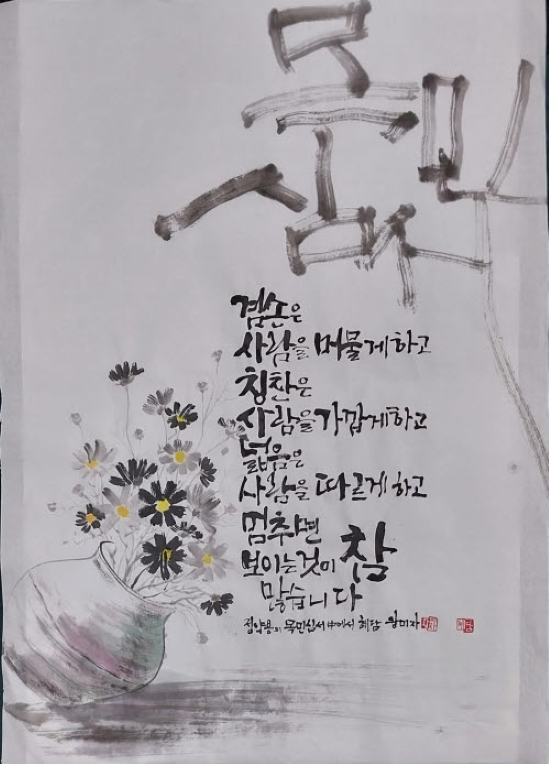 겸손은
사람을 머물게하고
칭찬은
사람을 가깝게하고
넓음은
사람을 따르게하고
멈추면
보이는것이 참
많습니다
정약용의 목민심서 中에서 혜담